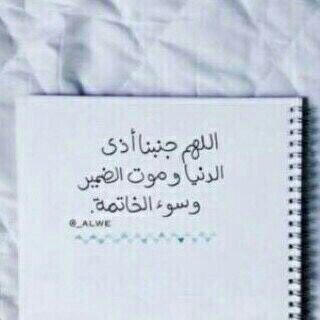 اللهم جنبنا أذى
الدنيا وموت الضمير
وسوء الخاتمة.
@_ALWE